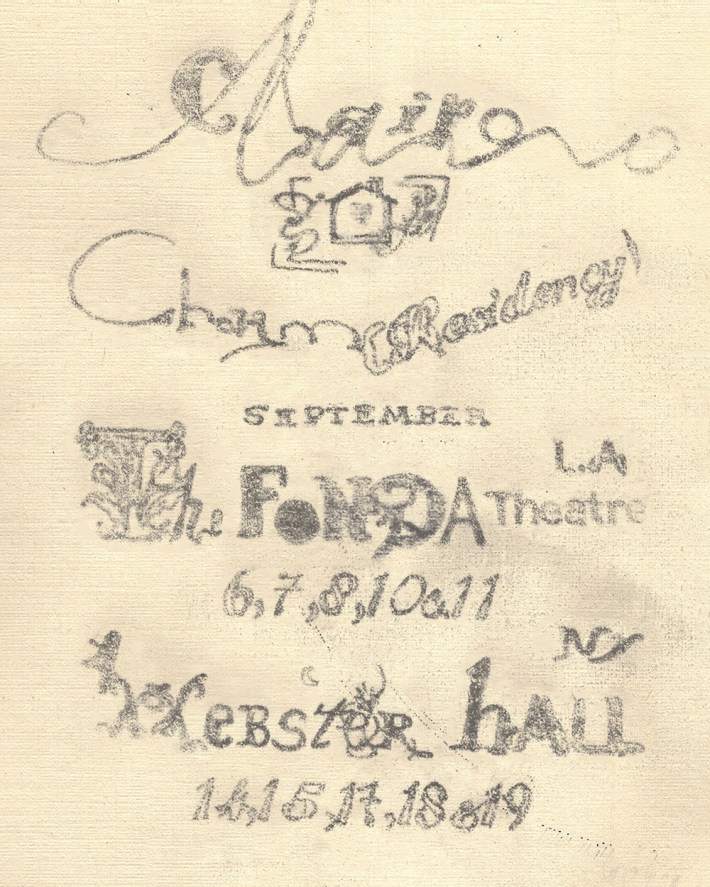 Clairo
Charm (Residency)
SEPTEMBER
L.A
The FONDA Theatre
6,7,8,10&11
NY
WEBSTER HALL
14,15,17,18&19